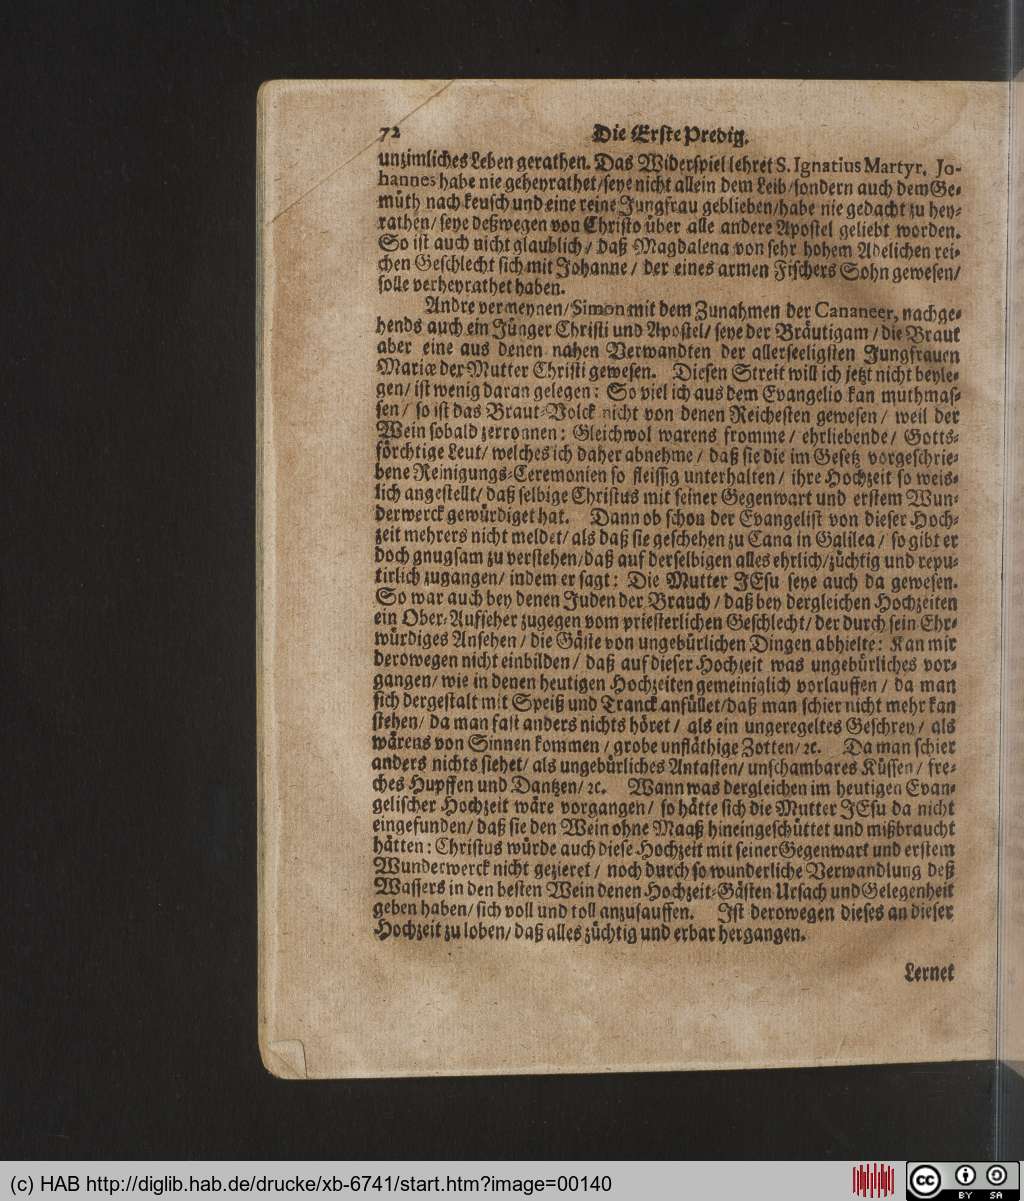 72 Die Erste Predig.
unzimliches Leben gerathen. Das Widerspiel lehret S. Ignatius Martyr, Jo-
hannes habe nie geheyrathet/seye nicht allein dem Leib/sondern auch dem Ge-
müth nach keusch und eine reine Jungfrau geblieben/habe nie gedacht zu hey-
rathen/ seye deßwegen von Christo über alle andere Apostel geliebt worden.
So ist auch nicht glaublich/ daß Magdalena von sehr hohem Adelichen rei-
chen Geschlecht sich mit Johanne/ der eines armen Fischers Sohn gewesen/
solle verheyrathet haben.
Andre vermeynen/Simon mit dem Zunahmen der Cananeer, nachge-
hends auch ein Jünger Christi und Apostel/ seye der Bräutigam/die Braut
aber eine aus denen nahen Verwandten der allerseeligsten Jungfrauen
Mariæ der Mutter Christi gewesen. Diesen Streit will ich jetzt nicht beyle-
gen/ ist wenig daran gelegen: So viel ich aus dem Evangelio kan muthmas-
sen/ so ist das Braut-Volck nicht von denen Reichesten gewesen/ weil der
Wein sobald zerronnen: Gleichwol warens fromme/ ehrliebende/ Gotts-
förchtige Leut/ welches ich daher abnehme/ daß sie die im Gesetz vorgeschrie-
bene Reinigungs-Ceremonien so fleissig unterhalten/ ihre Hochzeit so weis-
lich angestellt/ daß selbige Christus mit seiner Gegenwart und erstem Wun-
derwerck gewürdiget hat. Dann ob schon der Evangelist von dieser Hoch-
zeit mehrers nicht meldet/ als daß sie geschehen zu Cana in Galilea/ so gibt er
doch gnugsam zu verstehen/daß auf derselbigen alles ehrlich/züchtig und repu-
tirlich zugangen/ indem er sagt: Die Mutter JEsu seye auch da gewesen.
So war auch bey denen Juden der Brauch/ daß bey dergleichen Hochzeiten
ein Ober-Aufseher zugegen vom priesterlichen Geschlecht/ der durch sein Ehr-
würdiges Ansehen/ die Gäste von ungebürlichen Dingen abhielte: Kan mir
derowegen nicht einbilden/ daß auf dieser Hochzeit was ungebürliches vor-
gangen/ wie in denen heutigen Hochzeiten gemeiniglich vorlauffen/ da man
sich dergestalt mit Speiß und Tranck anfüllet/daß man schier nicht mehr kan
stehen/ da man fast anders nichts höret/ als ein ungeregeltes Geschrey/ als
wärens von Sinnen kommen/grobe unfläthige Zotten/ꝛc. Da man schier
anders nichts siehet/ als ungebürliches Antasten/ unschambares Küssen/ fre-
ches Hupffen und Dantzen/ꝛc. Wann was dergleichen im heutigen Evan-
gelischer Hochzeit wäre vorgangen/ so hätte sich die Mutter JEsu da nicht
eingefunden/ daß sie den Wein ohne Maaß hineingeschüttet und mißbraucht
hätten: Christus würde auch diese Hochzeit mit seiner Gegenwart und erstem
Wunderwerck nicht gezieret/ noch durch so wunderliche Verwandlung deß
Wassers in den besten Wein denen Hochzeit-Gästen Ursach und Gelegenheit
geben haben/ sich voll und toll anzusauffen. Ist derowegen dieses an dieser
Hochzeit zu loben/ daß alles züchtig und erbar hergangen.
Lernet
(c) HAB http://diglib.hab.de/drucke/xb-6741/start.htm?image=00140
cc BY SA